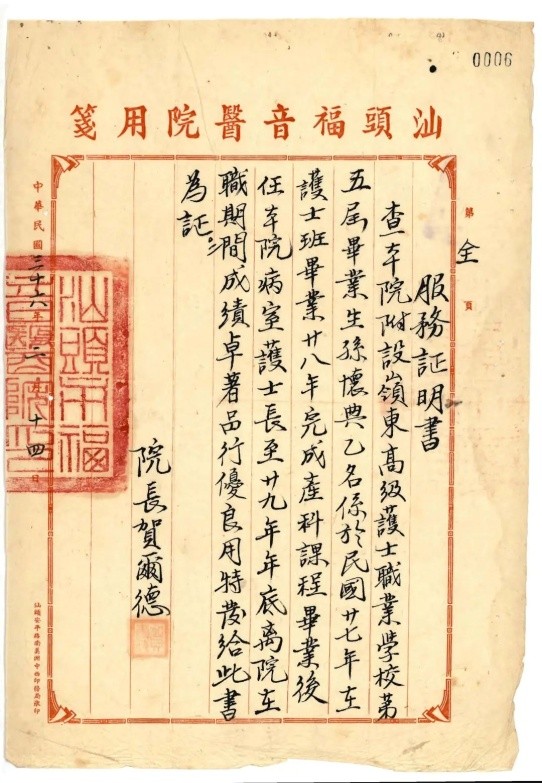 0006
汕頭福音醫院用箋
第全頁
服務証明書
查本院附設嶺東高級護士職業學校第
五屆畢業生孫懷典乙名係於民國廿七年在
護士班畢業廿八年完成產科課程畢業後
任本院病室護士長至廿九年年底離院在
職期間成績卓著品行優良用特發給此書
為証
院長賀爾德
中華民國三十六年二月十四日